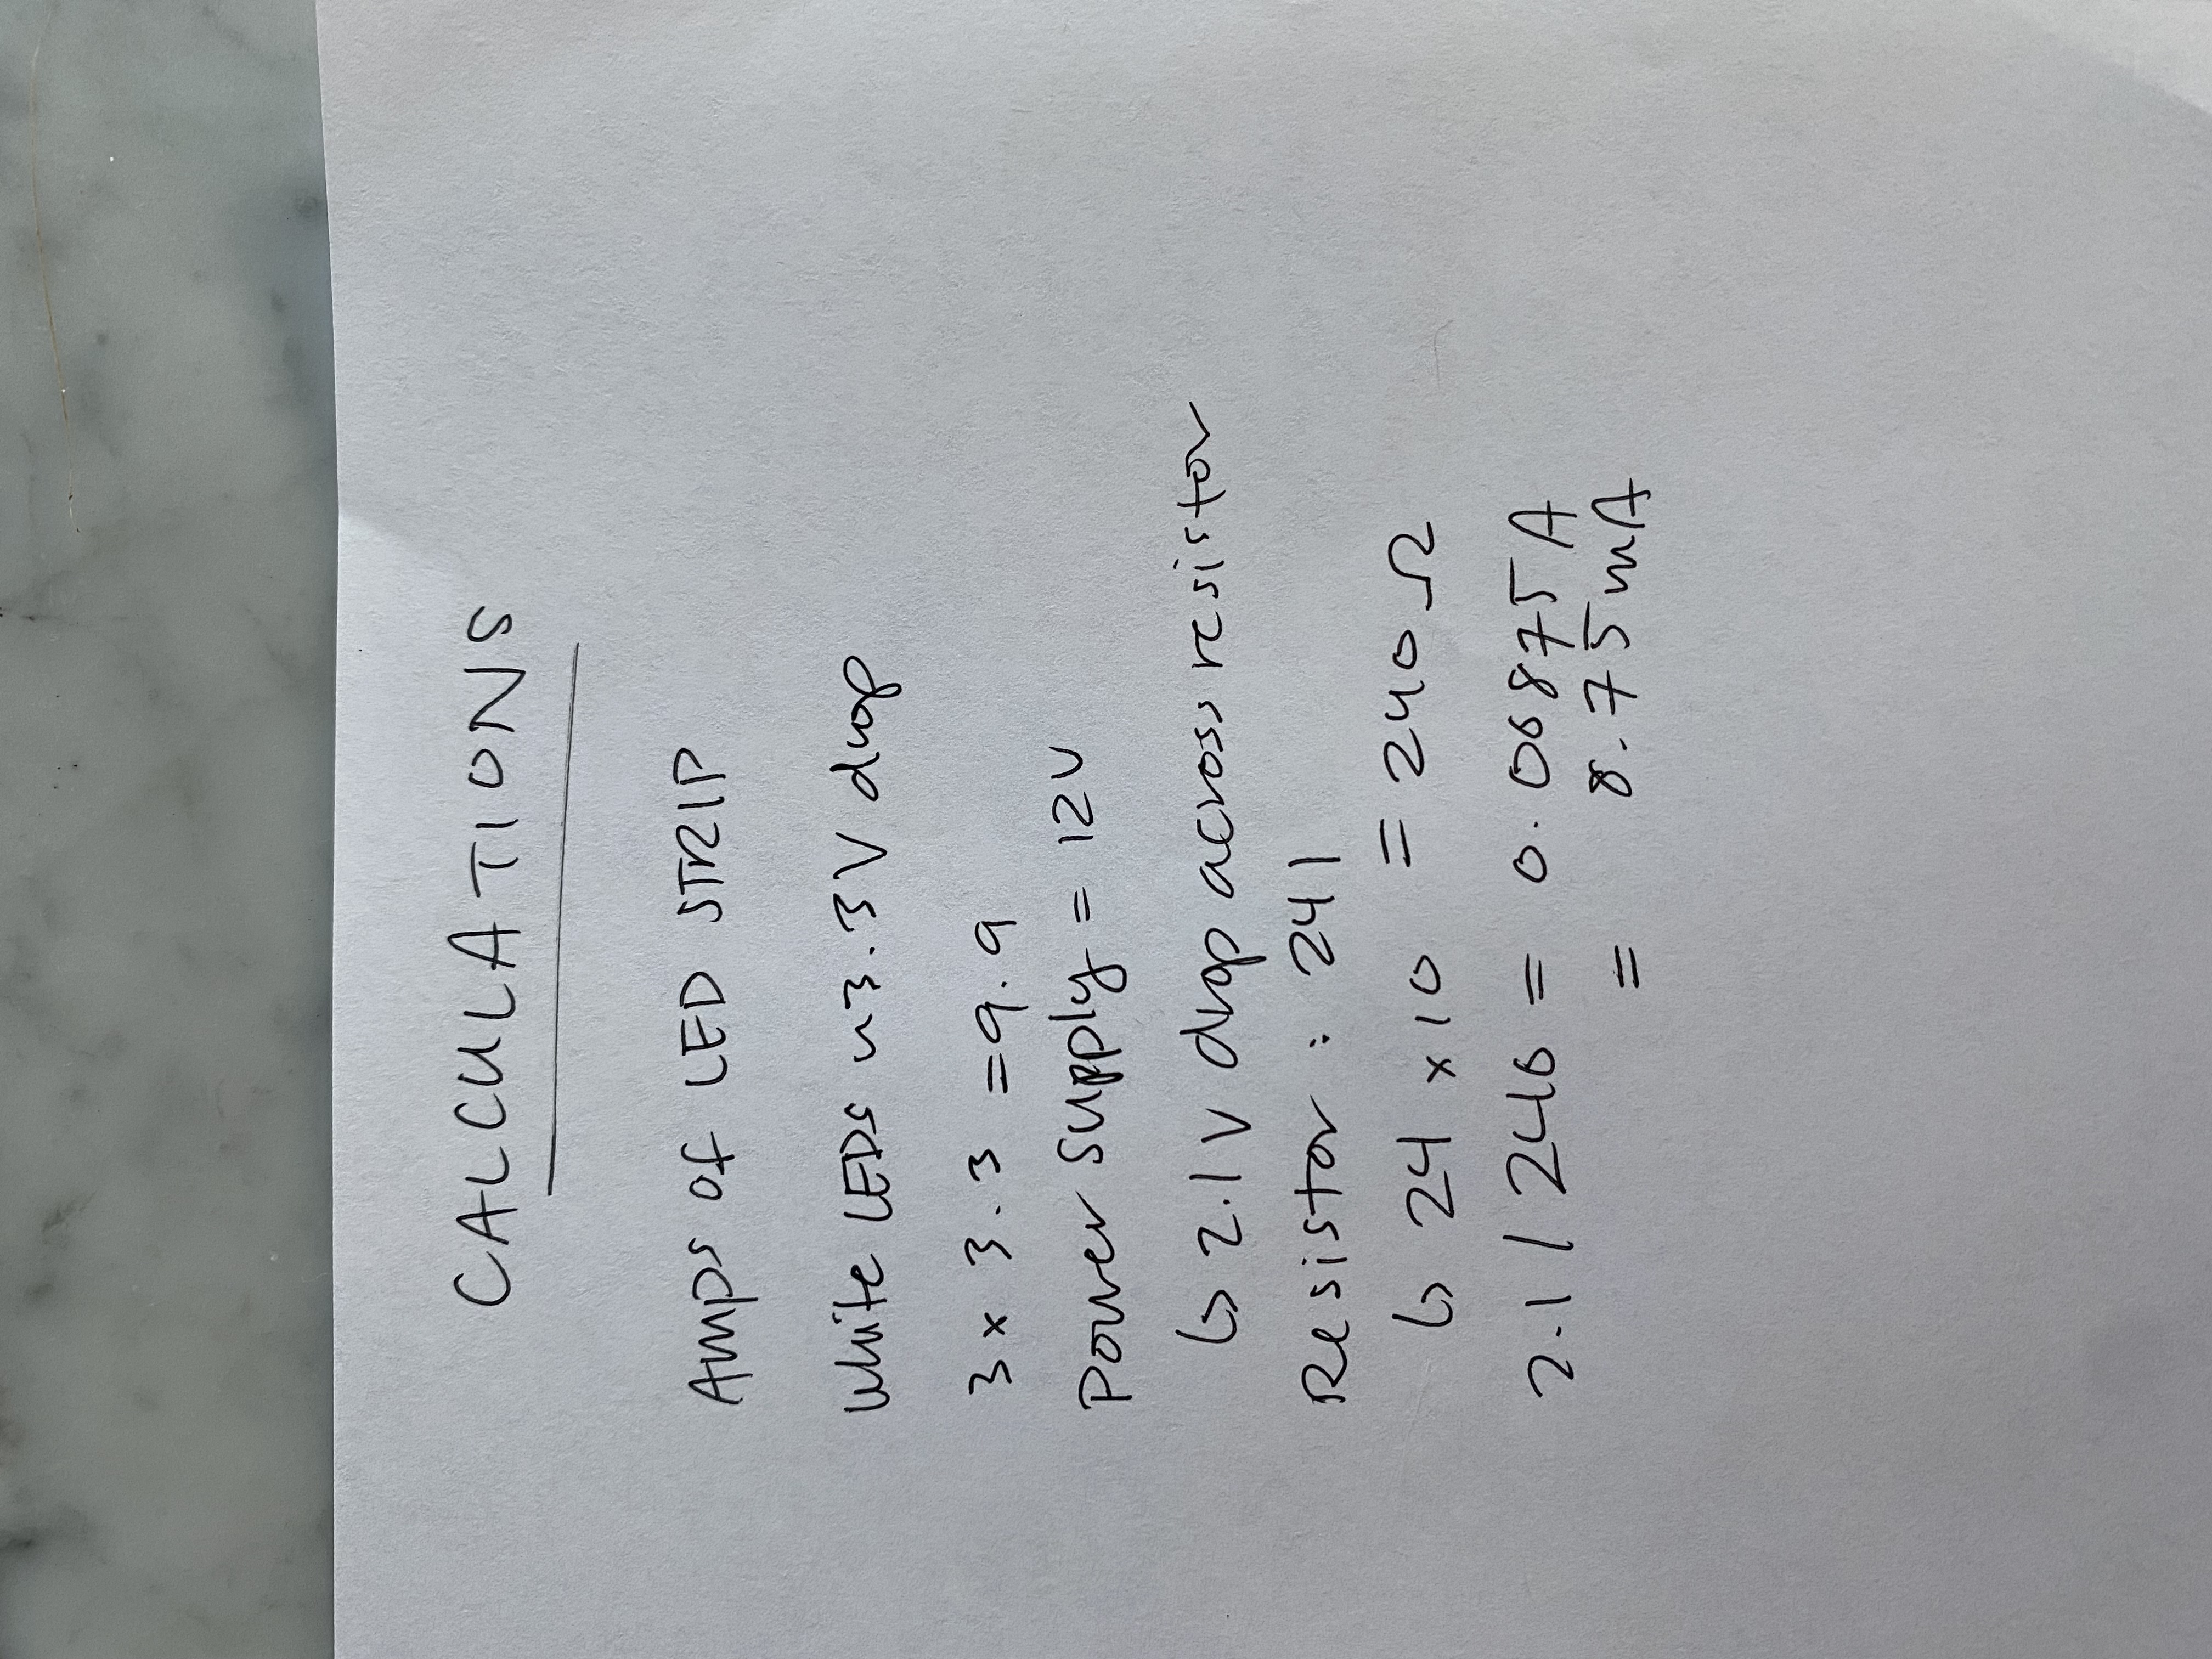 CALCULATIONS
Amps of LED STRIP
White LEDs ~3.3V drop
3 x 3.3 = 9.9
Power Supply = 12V
↳ 2.1V drop across resistor
Resistor : 241
↳ 24 x 10 = 240 Ω
2.1 / 240 = 0.00875 A
= 8.75mA